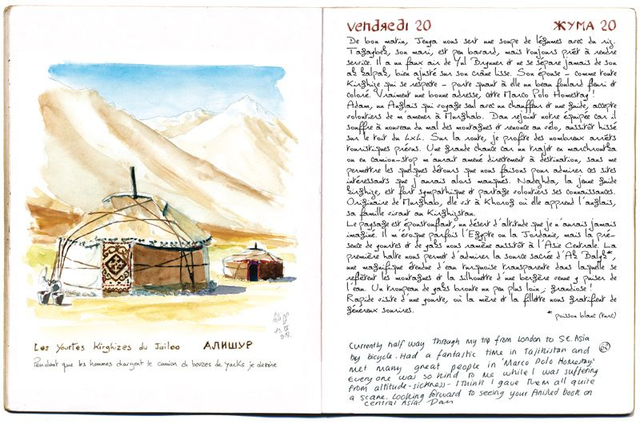 Les yourtes Kirghizes du Jailoo АЛИШУР
Pendant que les hommes chargent le camion de bouses de yacks je dessine
vendredi 20 ЖУМА 20
De bon matin, Jenga nous sert une soupe de légumes avec du riz.
Tagaybek, son mari, est peu bavard, mais toujours prêt à rendre
service. Il a un faux air de Yul Brynner et ne se sépare jamais de son
ak kalpak, bien ajusté sur son crâne lisse. Son épouse – comme toute
Kirghize qui se respecte – porte quant à elle un beau foulard fleuri et
coloré. Vraiment une bonne adresse, cette Marco Polo Homestay!
Adam, un Anglais qui voyage seul avec un chauffeur et une guide, accepte
volontiers de m'amener à Murghab. Dan rejoint notre équipée car il
souffre à nouveau du mal des montagnes et renonce au vélo, aussitôt hissé
sur le toit du 4x4. Sur la route, je profite des nombreux arrêts
touristiques prévus. Une grande chance car un trajet en marchroutka
ou en camion-stop m'aurait amené directement à destination, sans me
permettre les quelques détours que nous faisons pour admirer ces sites
intéressants que j'aurais alors manqués. Nadejda, la jeune guide
kirghize, est fort sympathique et partage volontiers ses connaissances.
Originaire de Murghab, elle vit à Khorog où elle apprend l'anglais,
sa famille vivant au Kirghizstan.
Le paysage est époustouflant, un désert d'altitude que je n'aurais jamais
imaginé. Il m'évoque parfois l'Egypte ou la Jordanie, mais la pré-
sence de yourtes et de yaks nous ramène aussitôt à l'Asie Centrale. La
première halte nous permet d'admirer la source sacrée d'Ak Balyk*,
une magnifique étendue d'eau turquoise transparente dans laquelle se
reflètent les montagnes et la silhouette d'une bergère venue y puiser de
l'eau. Un troupeau de yaks broute un peu plus loin; grandiose!
Rapide visite d'une yourte, où la mère et la fillette nous gratifient de
généreux sourires.
* poisson blanc
Currently half way through my trip from London to S.E. Asia
by bicycle. Had a fantastic time in Tajikistan and
met many great people in 'Marco Polo Homestay'
everyone was so kind to me while I was suffering
from altitude-sickness - I think I gave them all quite
a scare. Looking forward to seeing your finished book on
central Asia! Dan